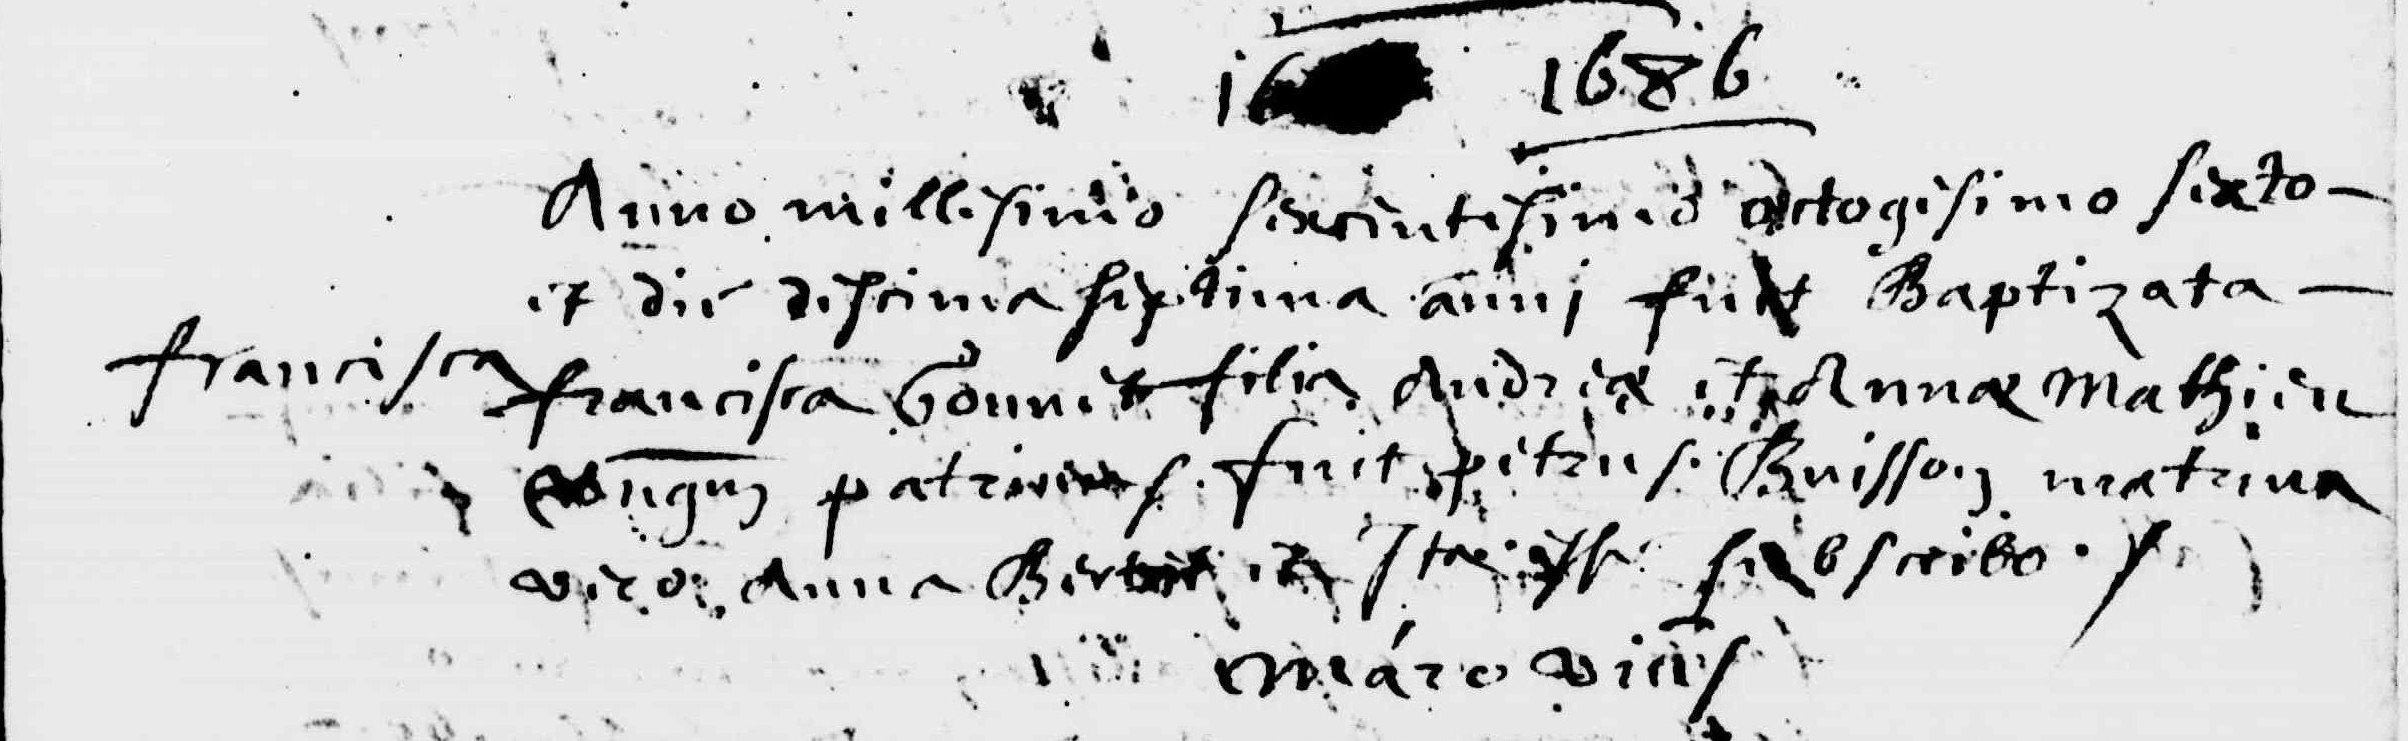 1686
Anno millesimo sexcentesimo octogesimo sexto
et die descima septima anni fuit Baptizata
francisca francisca Gonnet filia Andreæ et Annæ Mathieu
patrinus fuit petrus Buisson matrina
vero Anna Ita est subscribo
Maro vicus